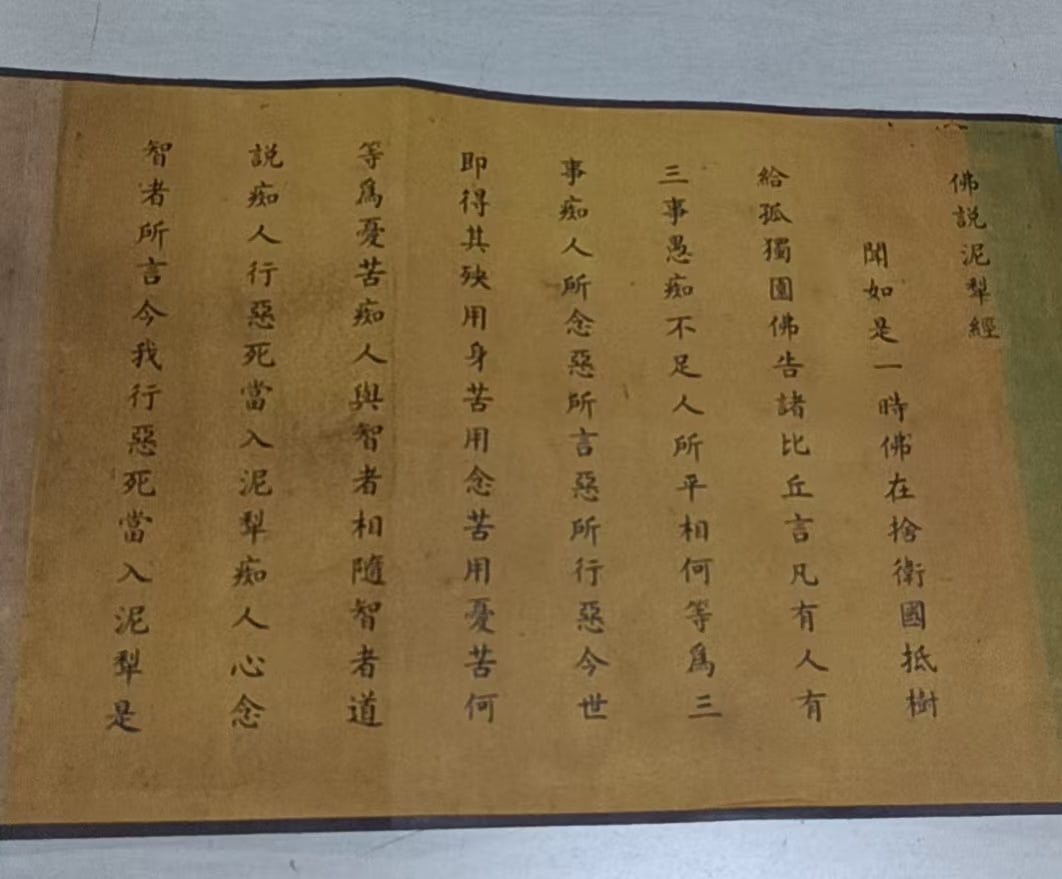 佛説泥犁經
聞如是一時佛在捨衛國抵樹
給孤獨園佛告諸比丘言凡有人有
三事愚痴不足人所平相何等爲三
事痴人所念惡所言惡所行惡今世
即得其殃用身苦用念苦用憂苦何
等爲憂苦痴人與智者相隨智者道
説痴人行惡死當入泥犁痴人心念
智者所言今我行惡死當入泥犁是